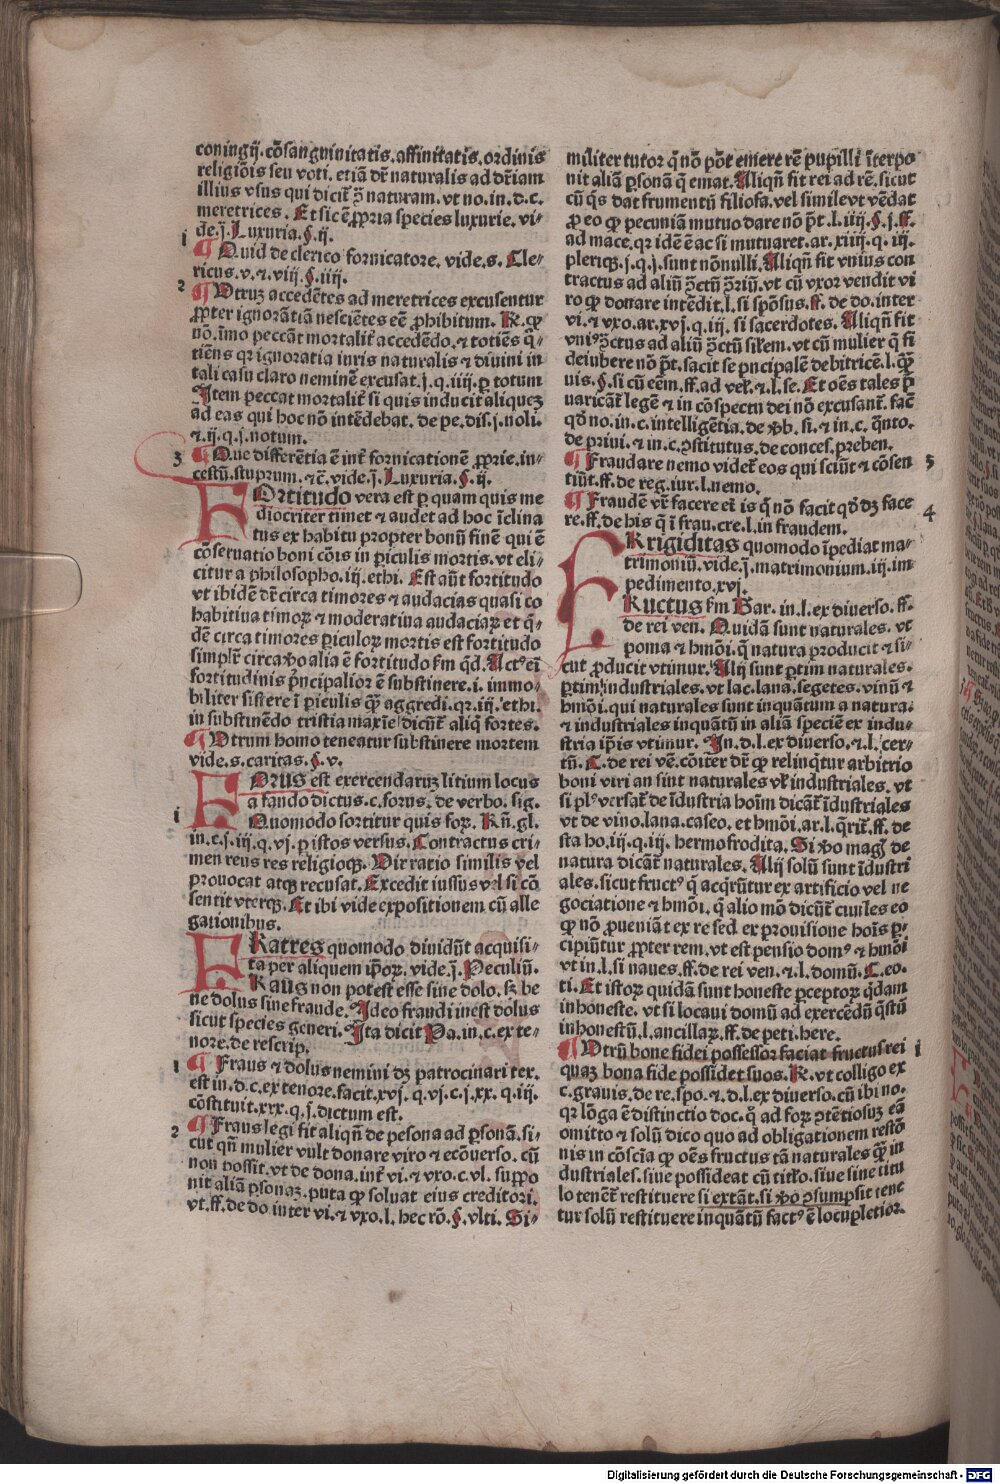 coningij. cōsanguinitatis. affinitatis. ordinis
religiōis seu voti. etiā dr̄ naturalis ad dr̄iam
illius vsus qui dicit̄ ꝯ̄ naturam. vt no. in. d. c.
meretrices. Et sic ē ꝓpria species luxurie. vi-
de. j̄. Luxuria. §. ij.
i
¶ Quid de clerico fornicatore. vide. s. Cle-
ricus. v. ⁊ viij. §. iiij.
2
¶ Vtruꝫ accedētes ad meretrices excusentur
ꝓpter ignorātiā nesciētes eē ꝓhibitum. R̄. ꝙ
nō. īmo peccāt mortalit̄ accedēdo. ⁊ totiēs q̄-
tiēns qr ignoratia iuris naturalis ⁊ diuini in
tali casu claro neminē excusat. j. q. iiij. ꝑ totum
Item peccat mortalit̄ si quis inducit aliqueꝫ
ad eas qui hoc nō intēdebat. de pe. dis. j. noli.
⁊. ij. q. j. notum.
3
¶ Que differētia ē int̄ fornicationē ꝓprie. in-
cestū. stuprum. ⁊c̄. vide. j̄. Luxuria. §. ij.
FOrtitudo vera est ꝑ quam quis me
diocriter timet ⁊ audet ad hoc īclina
tus ex habitu propter bonū finē qui ē
cōseruatio boni cōis in ꝑiculis mortis. vt eli-
citur a philosopho. iij. ethi. Est aūt fortitudo
vt ibidē dr̄ circa timores ⁊ audacias quasi co
habitiua timoꝝ ⁊ moderatiua audaciaꝝ et q̄-
dē circa timores ꝑiculoꝝ mortis est fortitudo
simplr̄ circa ꝟo alia ē fortitudo fm qd̄. Actꝰ eī
fortitudinis pn̄cipalior ē substinere. i. immo-
biliter sistere ī ꝑiculis q̄ꝫ aggredi. qr. iij. ethi.
in substinēdo tristia maxīe dicūt̄ aliq̄ fortes.
¶ Vtrum homo teneatur substinere mortem
vide. s. caritas. §. v.
FOrus est exercendaruꝫ litium locus
a fando dictus. c. forus. de verbo. sig.
i
Quomodo sortitur quis foꝝ. Rn̄. gl.
in. c. j. iij. q. vj. ꝑ istos versus. Contractus cri-
men reus res religioqꝫ. Vir ratio similis vel
prouocat atqꝫ recusat. Excedit iussus vꝉ si cō
sentit vterqꝫ. Et ibi vide expositionem cū alle
gationibus.
FRatres quomodo diuidūt acquisi-
ta per aliquem ip̄oꝝ. vide. j̄. Peculiū.
FRaus non potest esse sine dolo. sꝫ be
ne dolus sine fraude. Ideo fraudi inest dolus
sicut species generi. Ita dicit Pa. in. c. ex te-
nore. de rescrip.
1
¶ Fraus ⁊ dolus nemini dꝫ patrocinari tex.
est in. d. c. ex tenore. facit. xvj. q. vj. c. j. xx. q. iij.
cōstituit. xix. q. j. dictum est.
2
¶ Fraus legi fit aliqn̄ de pesona ad ꝑsonā. si-
cut qn̄ mulier vult donare viro ⁊ ecōuerso. cū
non possit. vt de dona. int̄ vi. ⁊ vxo. c. vl. suppo
nit aliā ꝑsonaꝫ. puta ꝙ soluat eius creditori.
vt. ff. de do inter vi. ⁊ vxo. l. hec rō. §. vlti. Si-
militer tutor q̄ nō pōt emere rē pupilli īterpo
nit aliā ꝑsonā q̄ emat. Aliqn̄ fit rei ad rē. sicut
cū q̄s dat frumentū filiofa. vel simile vt vēdat
ꝓ eo ꝙ pecuniā mutuo dare nō pt̄. l. iiij. §. j. ff.
ad mace. qr idē ē ac si mutuaret. ar. xiiij. q. iij.
pleriqꝫ. ⁊. q. j. sunt nōnulli. Aliqn̄ fit vnius con
tractus ad aliū ꝯctū ꝯriū. vt cū vxor vendit vi
ro ꝙ donare intēdit. l. si spōsus. ff. de do. inter
vi. ⁊ vxo. ar. xvj. q. iij. si sacerdotes. Aliqn̄ fit
vniꝰ ꝯctus ad aliū ꝯctū silem. vt cū mulier q̄ fi
deiubere nō pt̄. facit se pn̄cipalē debitricē. l. q̄ꝫ
uis. §. si cū eēm. ff. ad veꝉ. ⁊. l. se. Et oēs tales p̄
uaricāt̄ legē ⁊ in cōspectu dei nō excusant̄. facē
qd̄ no. in. c. intelligētia. de ꝟb. si. ⁊ in. c. q̄nto.
de priui. ⁊ in. c. ꝯstitutus. de conces. preben.
3
¶ Fraudare nemo videt̄ eos qui sciūt ⁊ cōsen
tiūt. ff. de reg. iur. l. nemo.
4
¶ Fraudē vr̄ facere eī is q̄ nō facit qd̄ dꝫ face
re. ff. de his q̄ ī frau. cre. l. in fraudem.
FRigiditas quomodo īpediat ma-
trimoniū. vide. j̄. matrimonium. iij. im
pedimento. xvj.
FRuctus fm Bar. in. l. ex diuerso. ff.
de rei ven. Quidā sunt naturales. vt
poma ⁊ hmōi. q̄ natura producit ⁊ si-
cut ꝓducit vtimur. Alij sunt ꝑtim naturales.
ꝑtim industriales. vt lac. lana. segetes. vinū ⁊
hmōi. qui naturales sunt inquātum a natura.
⁊ industriales inquātū in aliā speciē ex indu-
stria ip̄is vtimur. In. d. l. ex diuerso. ⁊. l. cer-
tū. C. de rei vē. cōiter dr̄ ꝙ relinq̄tur arbitrio
boni viri an sint naturales vꝉ industriales. vt
si plꝰ versat̄ de īdustria hoīm dicāt̄ īdustriales
vt de vino. lana. caseo. et hmōi. ar. l. q̄rit̄. ff. de
sta ho. iij. q. iij. hermofrodita. Si ꝟo magꝭ de
natura dicāt̄ naturales. Alij solū sunt īdustri
ales. sicut fructꝰ q̄ acq̄rūtur ex artificio vel ne
gociatione ⁊ hmōi. q̄ alio mō dicūt̄ ciuiles eo
ꝙ nō ꝓueniāt ex re sed ex prouisione hoīs ꝑ-
cipiūtur ꝓpter rem. vt est pensio domꝰ ⁊ hmōi
vt in. l. si naues. ff. de rei ven. ⁊. l. domū. C. eo.
ti. Et istoꝝ quidā sunt honeste ꝑceptoꝝ q̄dam
inhoneste. vt si locaui domū ad exercēdū q̄stū
inhonestū. l. ancillaꝝ. ff. de peti. here.
i
¶ Vtrū bone fidei possessor faciat fructus rei
quaꝫ bona fide possidet suos. R̄. vt colligo ex
c. grauis. de re. spo. ⁊. d. l. ex diuerso. cū ibi no.
qr lōga ē distinctio doc. q̄ ad foꝝ ꝯtētiosuꝫ eā
omitto ⁊ solū dico quo ad obligationem restō
nis in cōscīa ꝙ oēs fructus tā naturales q̄ꝫ in
dustriales. siue possideat cū titꝉo. siue sine titu
lo tenet̄ restituere si extāt. si ꝟo ꝯsumpsit tene
tur solū restituere inquātū factꝰ ē locupletior.
Digitalisierung gefördert durch die Deutsche Forschungsgemeinschaft - DFG